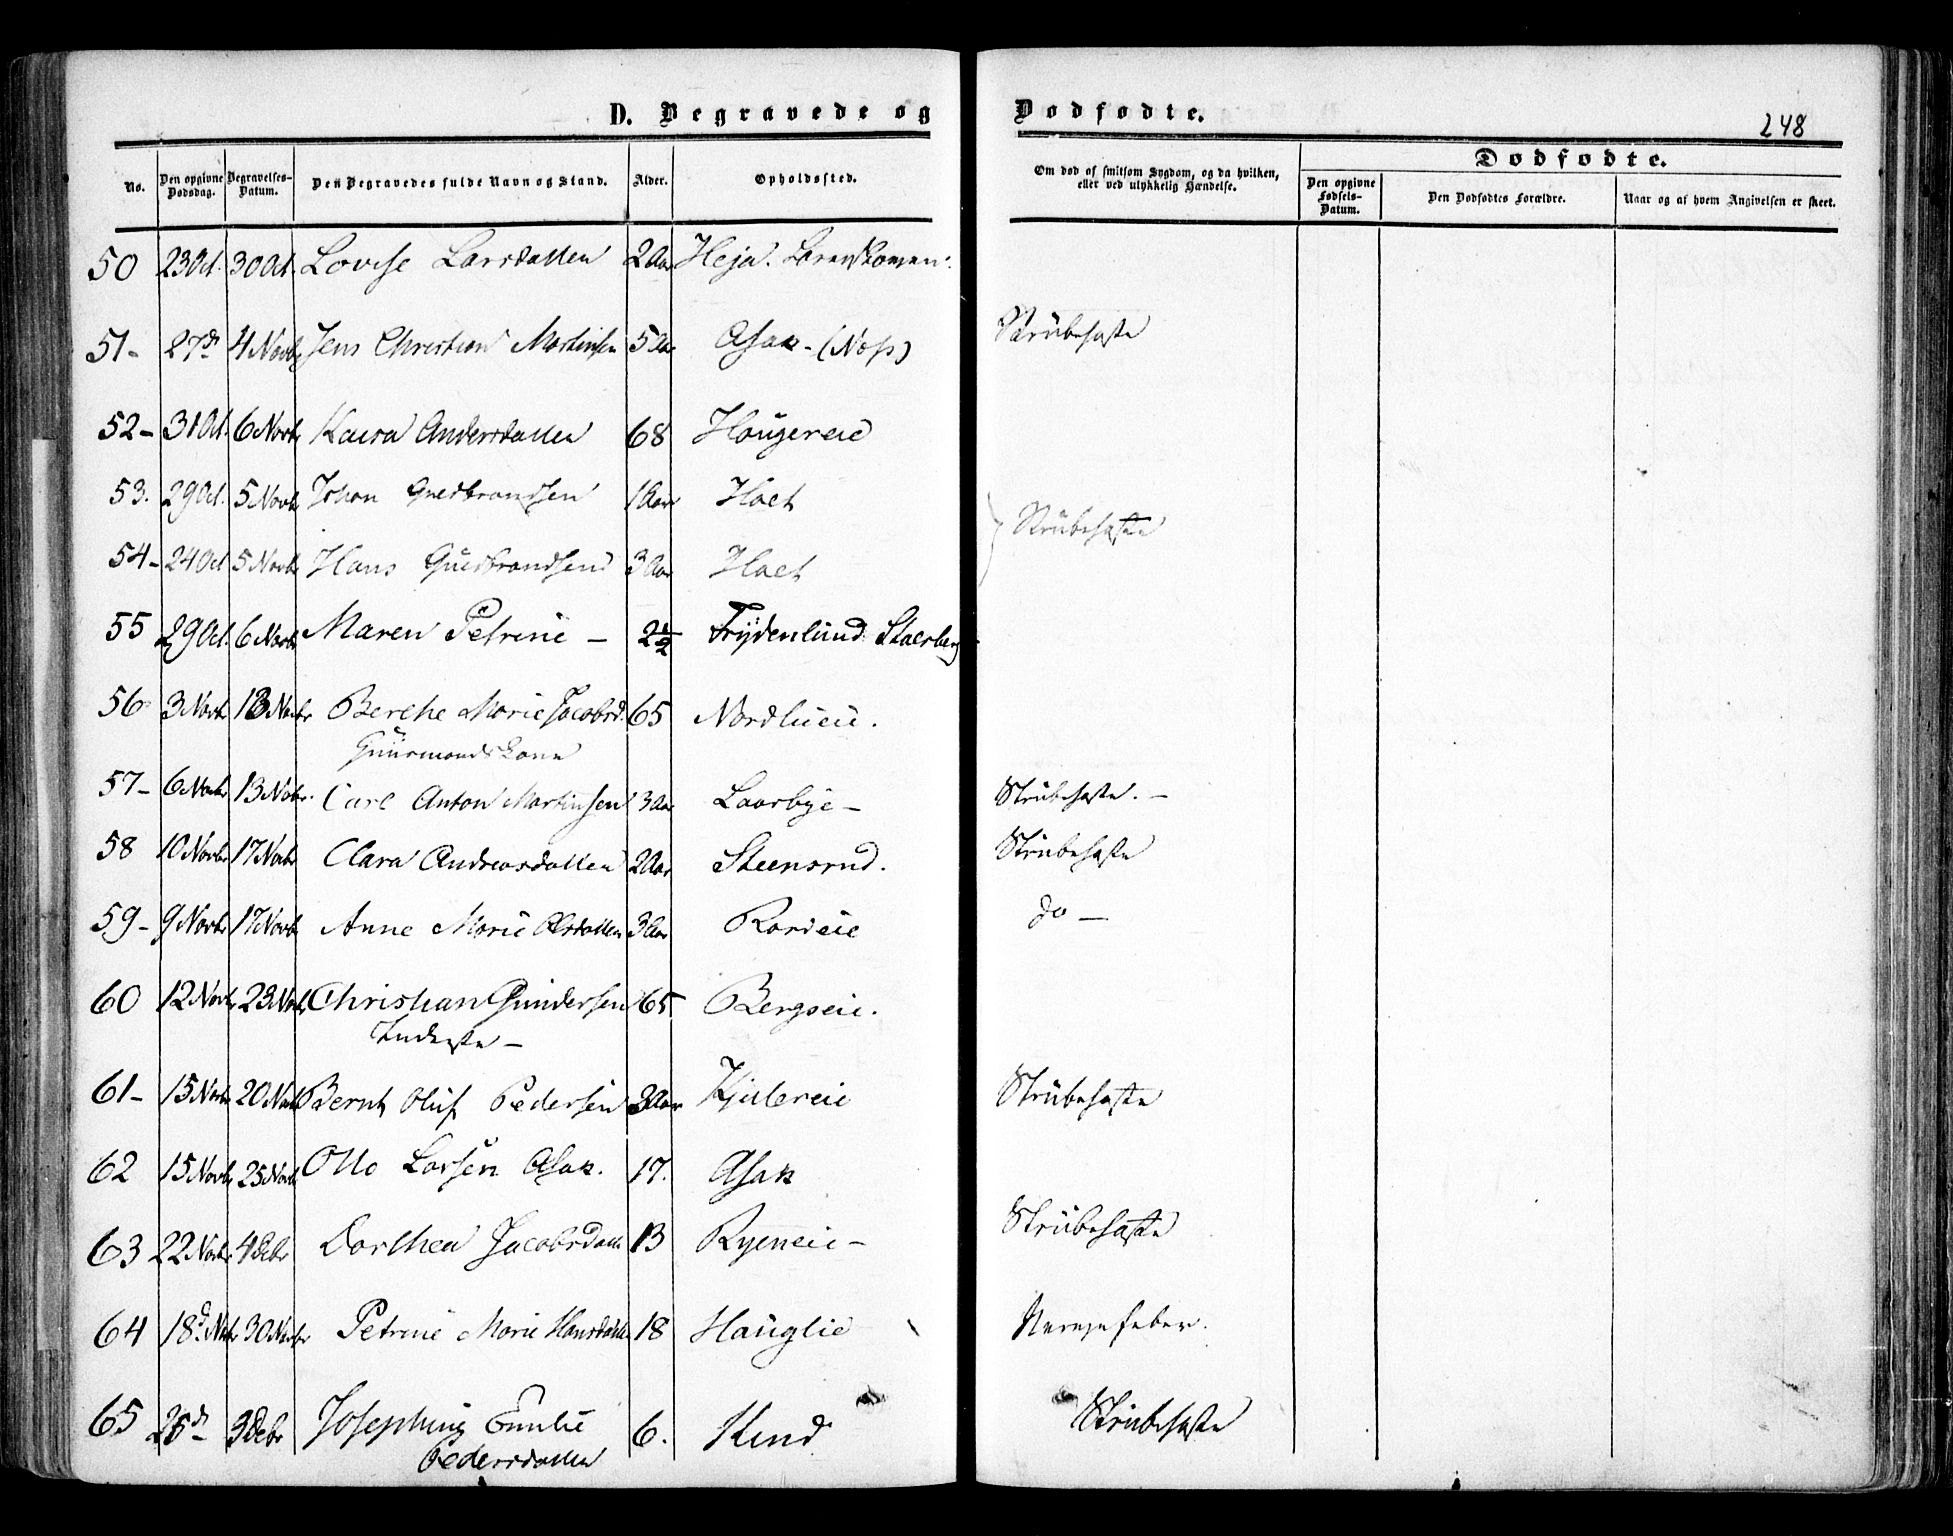 D. Begravede og Dødfødte.
248
No. Den opgivne Dødsdag. Begravelses-Datum. Den Begravedes fulde Navn og Stand. Alder. Opholdssted. Om død af smitsom Sygdom, og da hvilken, eller ved ulykkelig Hændelse. Dødfødte.
Den opgivne Fødsels-Datum. Den Dødfødtes Forældre. Naar og af hvem Angivelsen er skeet.
50 23 Oct. 30 Oct. Lovise Larsdatter 2 Aar Heja.
51- 27de 4 Novbr Jens Christian Martinsen 5 Aar Asak - (Nos) Strübehoste
52- 31 Oct. 6 Novbr Kaisa Andersdatter 68 Haugereie
53. 29 Oct. 5 Novbr Johan Gudbrandsen 1 Aar Hoel
Strübehoste
54- 24 Oct 5 Novbr Hans Gudbrandsen 3 Aar Hoel
55 29 Oct. 6 Novbr Maren Petrine - 2½ Frydenlund Skaersberg
56 3 Novbr 13 Novbr Berthe Marie Jacobsd. 65 Nordlieie.
Guürmandskone
57- 6 Novbr 13 Novbr. Carl Anton Martinsen 3 Aar Laarbye - Strübehoste. -
58 10 Novbr 17 Novbr Clara Andreasdatter 2 Aar Steensrud. Strübehoste
59- 9 Novbr 17 Novbr Anne Marie Olsdatter 3 Aar do -
60 12 Novbr 23 Novbr Christian Gundersen 65 Bergseie.
Inderste -
61- 15 Novbr 20 Novbr Bernt Oluf Pedersen 3 Aar Kjulereie Strübehoste
62 15 Novbr 25 Novbr Otto Larsen Asak. 17. Asak
63 22 Novbr 4 Debr Dorthea Jacobsdatt 13 Ryeneie - Strübehoste
64 18de Novbr 30 Novbr Petrine Marie Hansdatter 18 Hauglie Nervefeber.
65 25d - 3 Debr Josephine Emilie 6. Kind Strübehoste
Pedersdatter